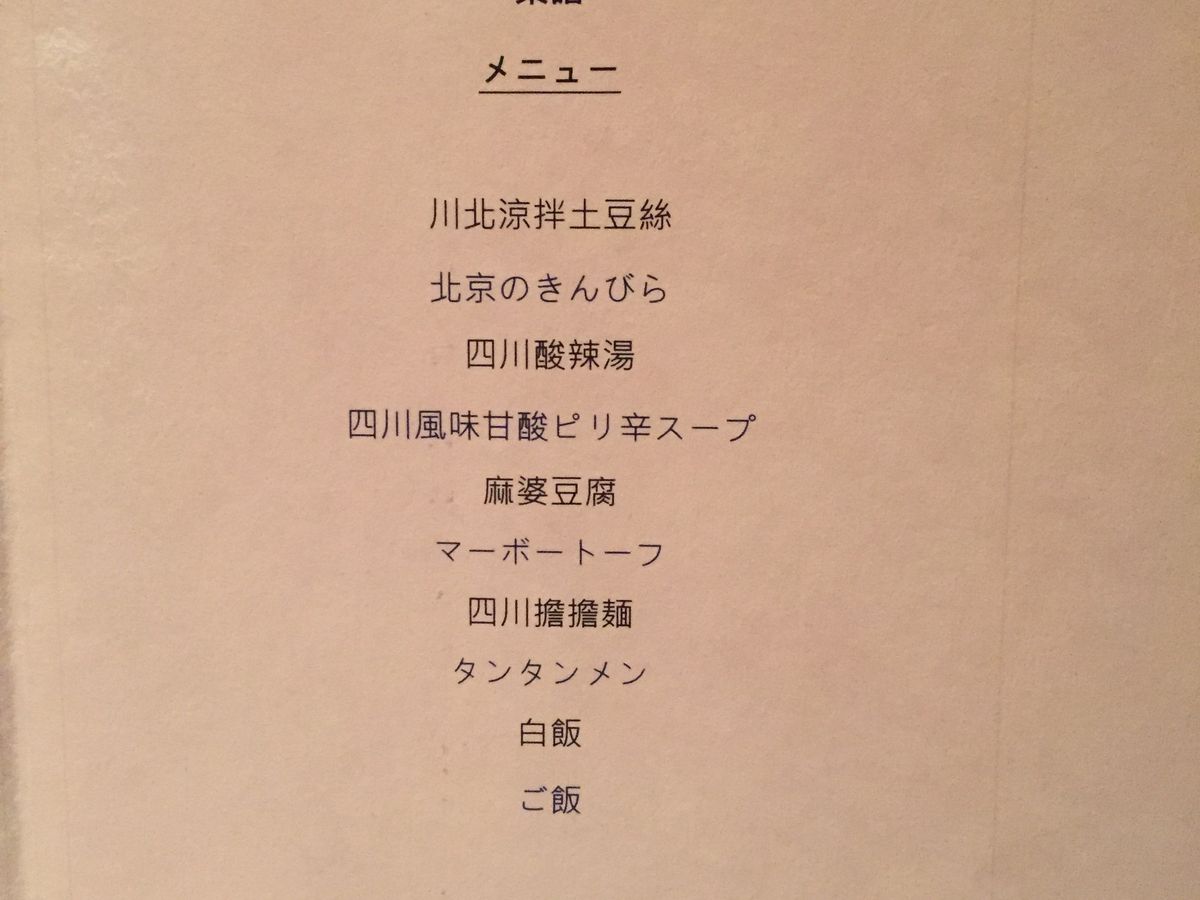 メニュー
川北涼拌土豆絲
北京のきんぴら
四川酸辣湯
四川風味甘酸ピリ辛スープ
麻婆豆腐
マーボートーフ
四川擔擔麺
タンタンメン
白飯
ご飯